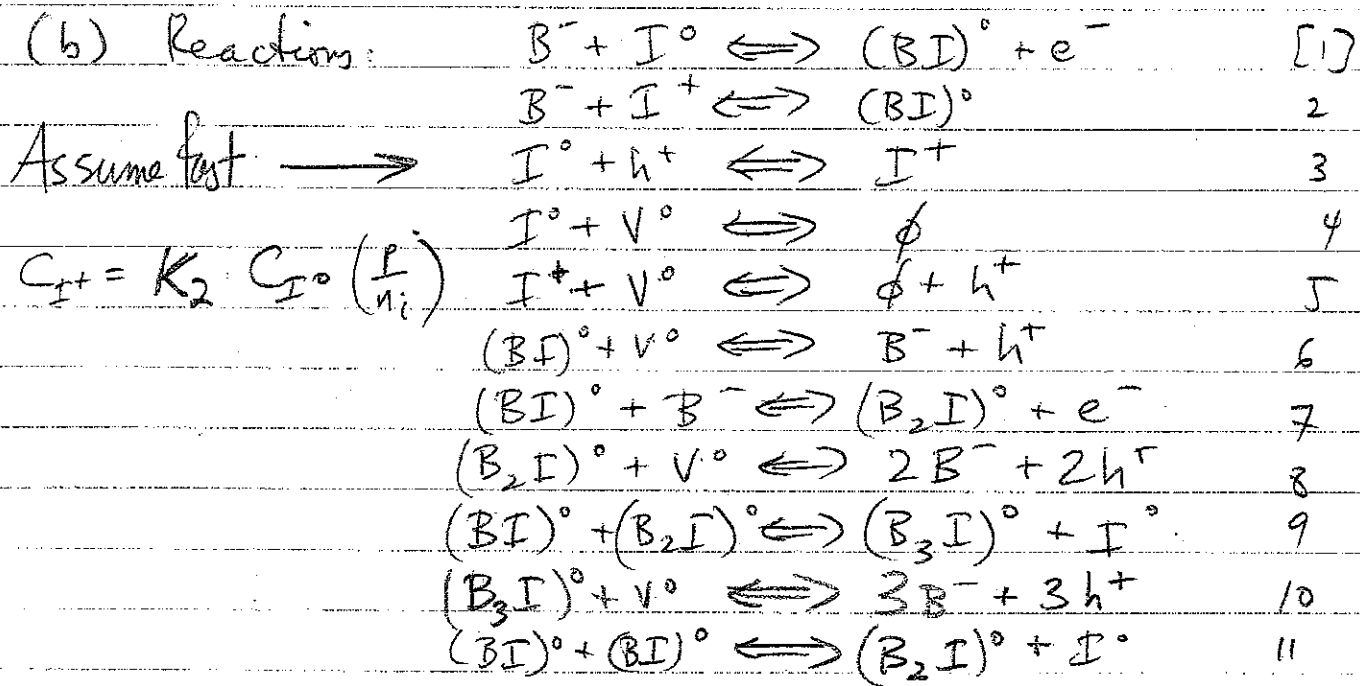 (b) Reactions: B⁻ + I° ⟺ (BI)° + e⁻ [1]
B⁻ + I⁺ ⟺ (BI)° 2
Assume fast ⟶ I° + h⁺ ⟺ I⁺ 3
I° + V° ⟺ ϕ 4
C_I⁺ = K₂ C_I° (p/nᵢ) I⁺ + V° ⟺ ϕ + h⁺ 5
(BI)° + V° ⟺ B⁻ + h⁺ 6
(BI)° + B⁻ ⟺ (B₂I)° + e⁻ 7
(B₂I)° + V° ⟺ 2B⁻ + 2h⁺ 8
(BI)° + (B₂I)° ⟺ (B₃I)° + I° 9
(B₃I)° + V° ⟺ 3B⁻ + 3h⁺ 10
(BI)° + (BI)° ⟺ (B₂I)° + I° 11